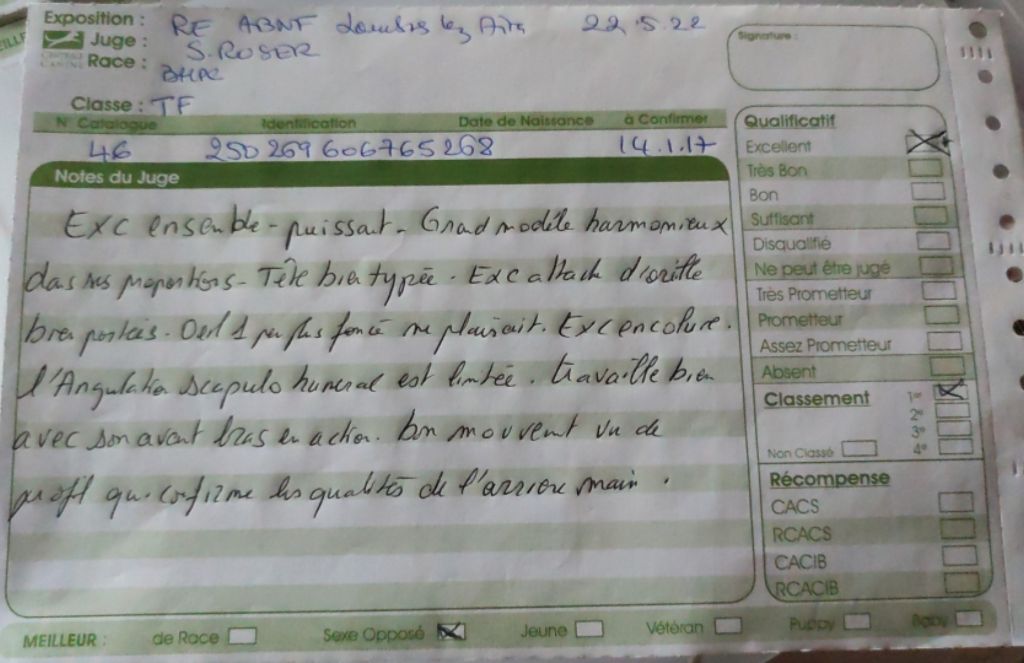 Exposition : RE ABNF Lombrs lez Aire 22.5.22
Juge : S. ROSER
CENTRALE CANINE
Race : BHPC
Classe : TF
Signature :
N° Catalogue Identification Date de Naissance à Confirmer
46 250 269 606765268 14.1.17
Notes du Juge
Exc ensemble - puissant - Grand modèle harmonieux
dans ses proportions - Tête bien typée. Exc attach d'oreille
bien portées. Oeil 1 peu plus foncé me plairait. Exc encolure.
l'Angulation scapulo humeral est limitée. travaille bien
avec son avant bras en action. bon mouvent vu de
profil qui confirme les qualités de l'arriere main.
Qualificatif
Excellent
Très Bon
Bon
Suffisant
Disqualifié
Ne peut être jugé
Très Prometteur
Prometteur
Assez Prometteur
Absent
Classement 1er
2e
3e
4e
Non Classé
Récompense
CACS
RCACS
CACIB
RCACIB
MEILLEUR : de Race Sexe Opposé Jeune Vétéran Puppy Baby